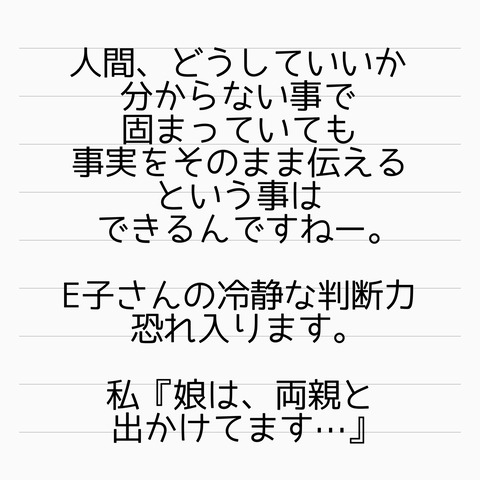 人間、どうしていいか
分からない事で
固まっていても
事実をそのまま伝える
という事は
できるんですねー。
E子さんの冷静な判断力
恐れ入ります。
私『娘は、両親と
出かけてます…』